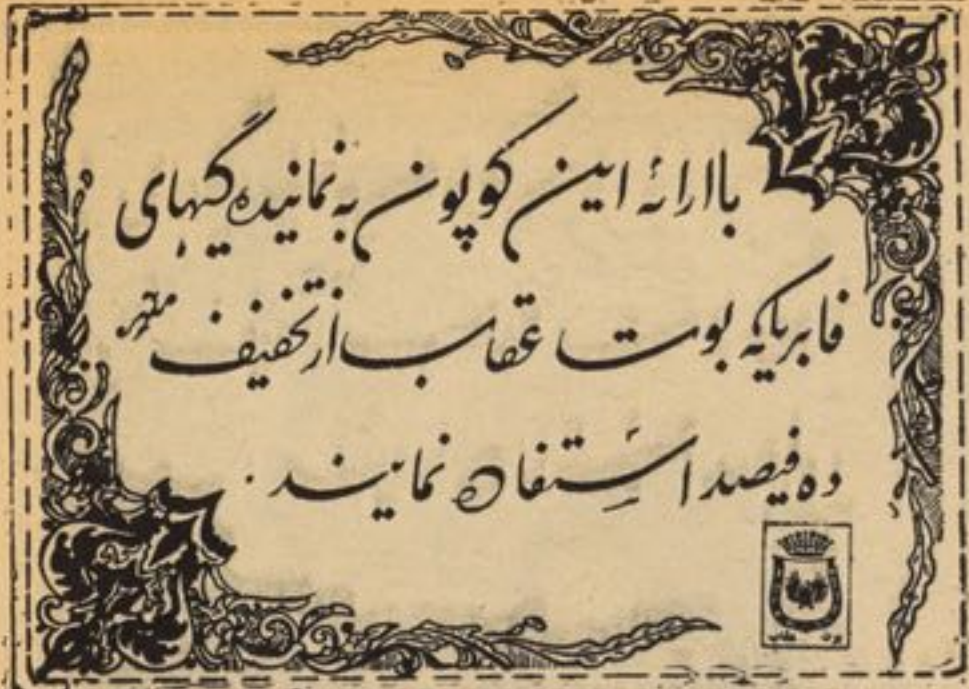 با ارائهٔ این کوپون به نمانیده گیهای
فابریکه بوت عقاب از تخفیف
ده فیصد استفاده نمایند.
بوت عقاب